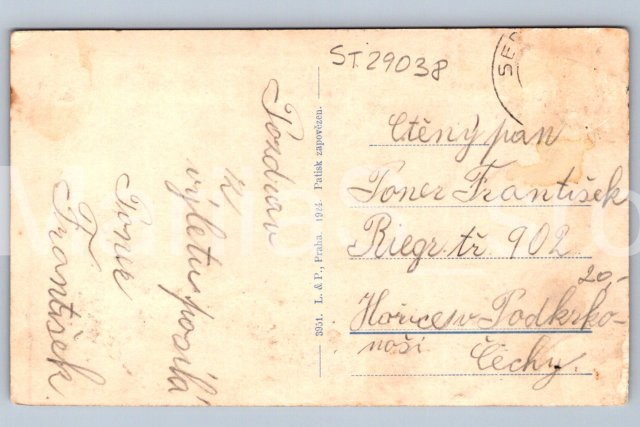 ST. 29038
SED
Pozdrav
z
výletu posílá
Poner
František
3951. L. & P., Praha. 1924 Patisk zapovězen.
Ctěný pan
Poner František
Riegr. tř. 902
20,-
Hořice v Podkrko-
noší
Čechy.